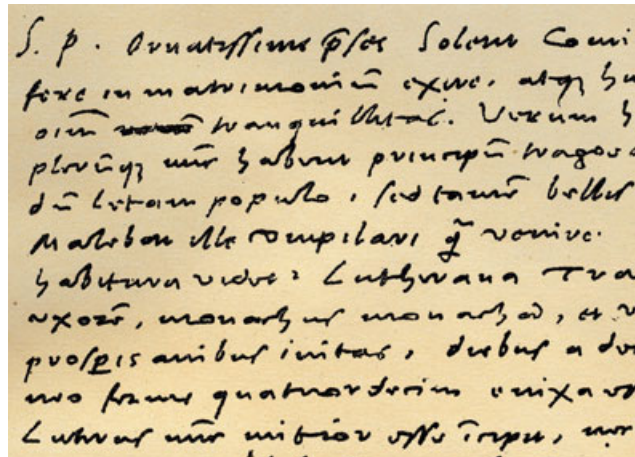 S. P. Ornatissime p̄ses Solent Comi
fere in matrimoniū exire, atqꝫ hu
oīm tranquillitas. Verum h
plerūqꝫ nūc habent principū tragoe
dū letam populo, sed tamē bellis
Malebam ille compilari q̄ venire.
habitura vide? Lutherana Tra
uxorē, monachus monachā, et
prosperis avibus initas, diebus a du
neo ferme quatuordecim enixa es
Luterus nūc mitior esse īcipit, nec